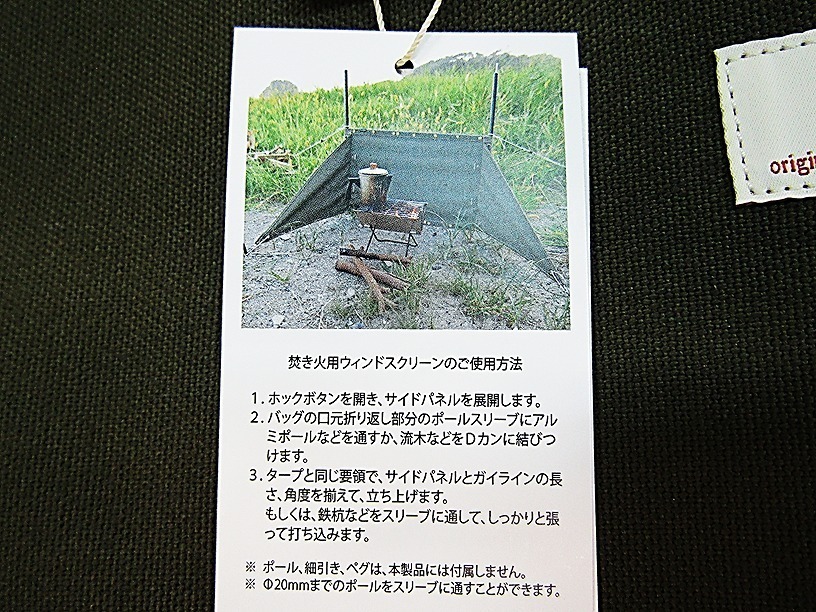 焚き火用ウィンドスクリーンのご使用方法
1. ホックボタンを開き、サイドパネルを展開します。
2. バッグの口元折り返し部分のポールスリーブにアル
ミポールなどを通すか、流木などをDカンに結びつ
けます。
3. タープと同じ要領で、サイドパネルとガイラインの長
さ、角度を揃えて、立ち上げます。
もしくは、鉄杭などをスリーブに通して、しっかりと張
って打ち込みます。
※ ポール、細引き、ペグは、本製品には付属しません。
※ Φ20mmまでのポールをスリーブに通すことができます。